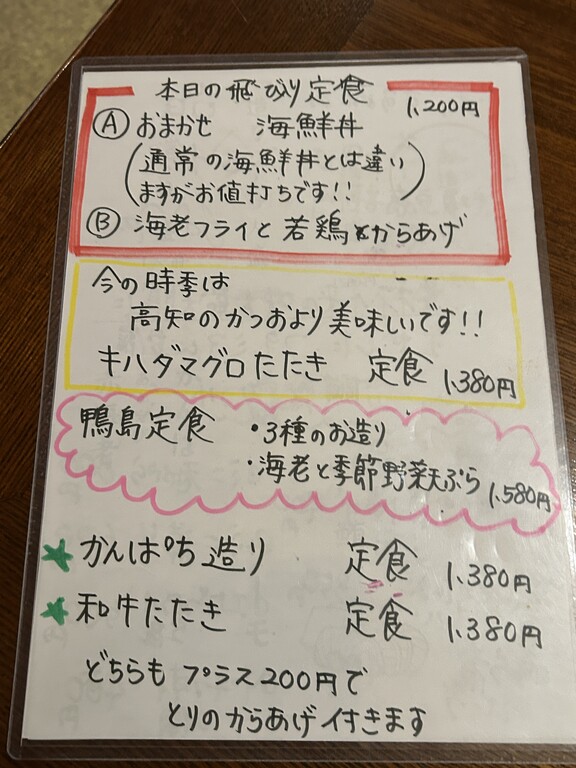 本日の飛びきり定食 1,200円
Ⓐ おまかせ 海鮮丼
(通常の海鮮丼とは違い
ますがお値打ちです!!)
Ⓑ 海老フライと若鶏からあげ
今の時季は
高知のかつおより美味しいです!!
キハダマグロたたき 定食 1,380円
鴨島定食 ・3種のお造り
・海老と季節野菜天ぷら 1,580円
★かんぱち造り 定食 1,380円
★和牛たたき 定食 1,380円
どちらも プラス200円で
とりのからあげ付きます